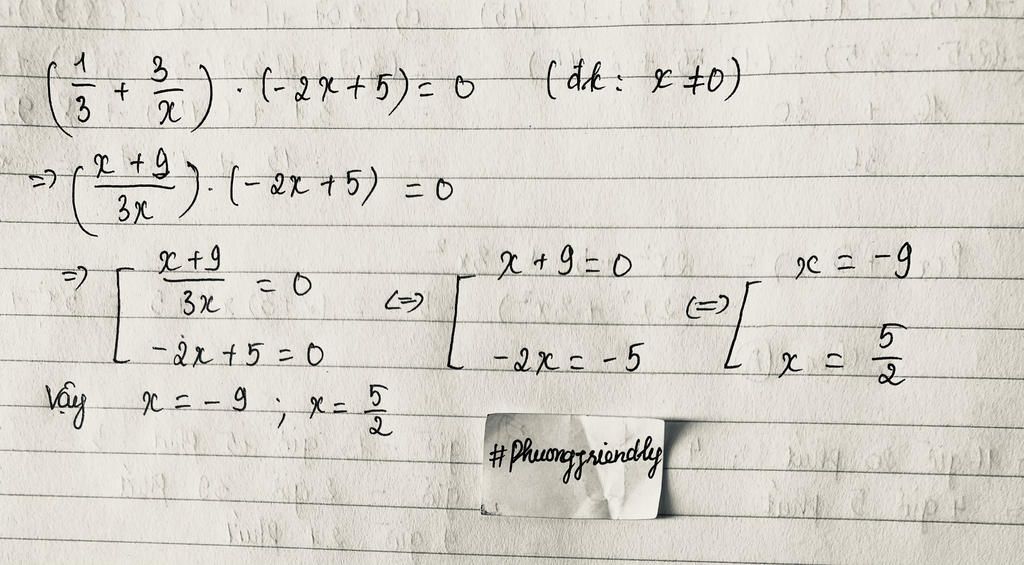 (1/3 + 3/x) . (-2x + 5) = 0 (đk: x ≠ 0)
=> (x + 9/3x) . (-2x + 5) = 0
=> [ x + 9/3x = 0 <=> [ x + 9 = 0 <=> [ x = -9
-2x + 5 = 0 -2x = -5 x = 5/2
Vậy x = -9 ; x = 5/2
#Phuongfriendly